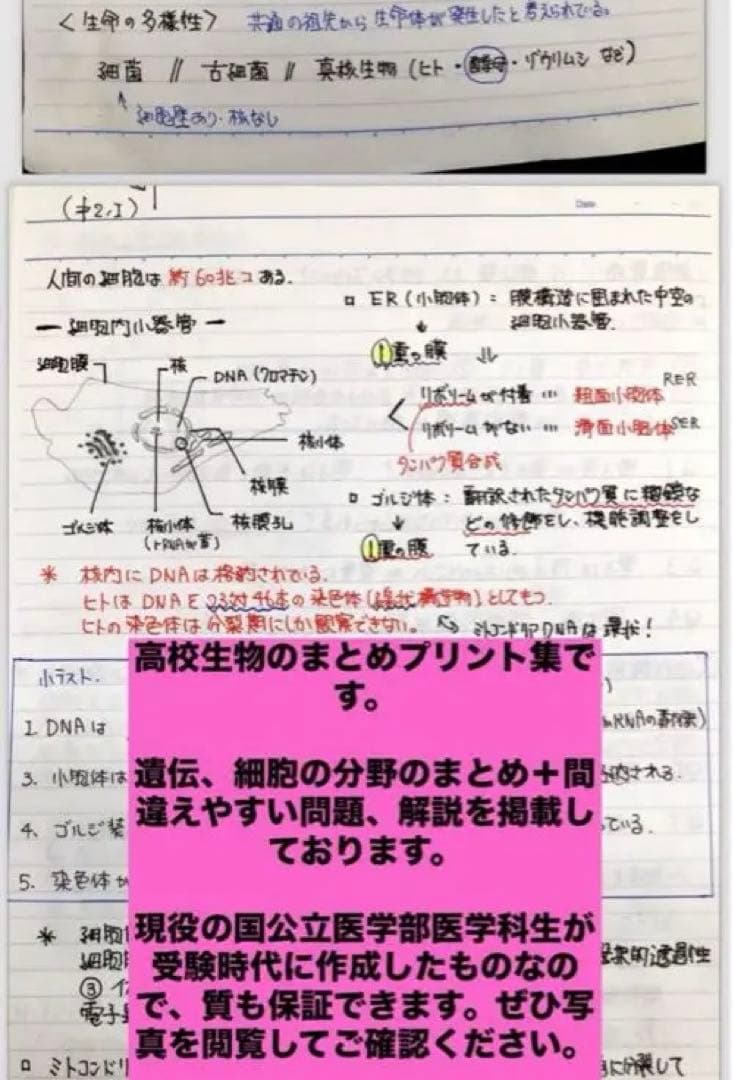 〈生命の多様性〉 共通の祖先から生命体が発生したと考えられている。
細菌 // 古細菌 // 真核生物(ヒト・酵母・ゾウリムシ など)
細胞壁あり・核なし
Date
人間の細胞は 約60兆コ ある。
ー 細胞内小器官 ー
細胞膜
核
DNA(クロマチン)
核小体
核膜
核膜孔
核小体
ゴルジ体
□ ER(小胞体): 膜構造に囲まれた中空の
細胞小器官.
1重の膜
リボソームが付着 … 粗面小胞体 RER
リボソームがない … 滑面小胞体 SER
タンパク質合成
□ ゴルジ体: 翻訳されたタンパク質に糖鎖な
どの修飾をし、機能調整をし
ている.
1重の膜
* 核内にDNAは格納されている.
ヒトはDNAを23対46本の染色体(線状構造物)としてもつ.
ヒトの染色体は分裂期にしか観察できない.
ミトコンドリアDNAは環状!
小テスト.
1. DNAは
mRNAの翻訳)
3. 小胞体は
される.
4. ゴルジ装
ている.
5. 染色体が
* 細胞
細胞
③
電子
透過性
□ ミトコンドリ
して
高校生物のまとめプリント集で
す。
遺伝、細胞の分野のまとめ＋間
違えやすい問題、解説を掲載し
ております。
現役の国公立医学部医学科生が
受験時代に作成したものなの
で、質も保証できます。ぜひ写
真を閲覧してご確認ください。